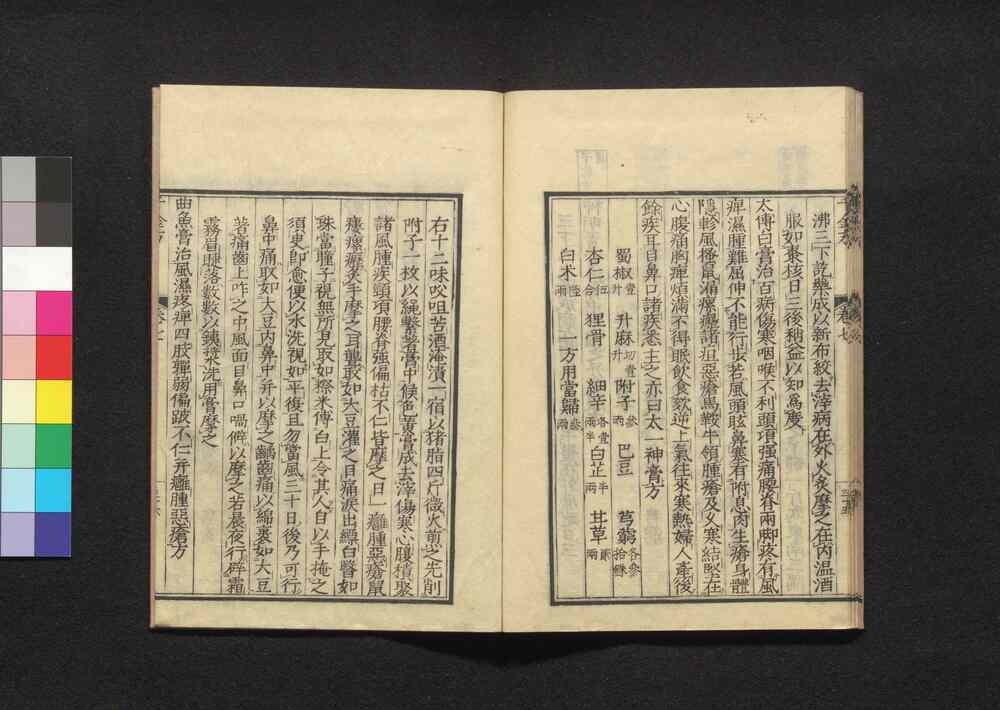 沸三下訖藥成以新布絞去滓病在外火炙摩之在內温酒
服如棗核日三後稍益以知爲度
太傅曰膏治百病傷寒咽喉不利頭項强痛腰脊兩脚疼有風
痺濕腫難屈伸不能行步若風頭眩鼻塞有附息肉生瘡身體
隱軫風搔鼠漏瘰癧諸疽惡瘡馬鞍牛領腫瘡及久寒結堅在
心腹痛胸痺煩滿不得眠飲食欬逆上氣往來寒熱婦人產後
餘疾耳目鼻口諸疾悉主之亦曰太一神膏方
蜀椒壹升 升麻切壹升 附子參兩 巴豆 芎藭各參拾銖
杏仁伍合 狸骨 細辛各壹兩半 白芷半兩 甘草貳兩
白朮陸兩 一方用當歸參兩
右十二味㕮咀苦酒淹漬一宿以猪脂四斤微火煎之先削
附子一枚以繩繫著膏中候色黃膏成去滓傷寒心腹積聚
諸風腫疾頸項腰脊強偏枯不仁皆摩之日一癰腫惡瘡鼠
瘻瘰癧炙手摩之耳聾取如大豆灌之目痛淚出縹白瞖如
珠當瞳子視無所見取如穄米傅白上令其人自以手掩之
須臾即愈便以水洗視如平復且勿當風三十日後乃可行
鼻中痛取如大豆內鼻中并以摩之齲齒痛以綿裹如大豆
著痛齒上咋之中風面目鼻口喎僻以摩之若晨夜行辟霜
霧眉睫落數數以鐵漿水洗用膏摩之
曲魚膏治風濕疼痺四肢嚲弱偏跛不仁并癰腫惡瘡方